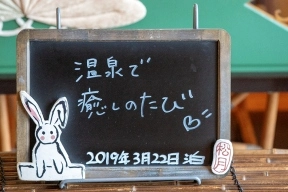 温泉で
癒しのたび
2019年3月22日 泊
松月